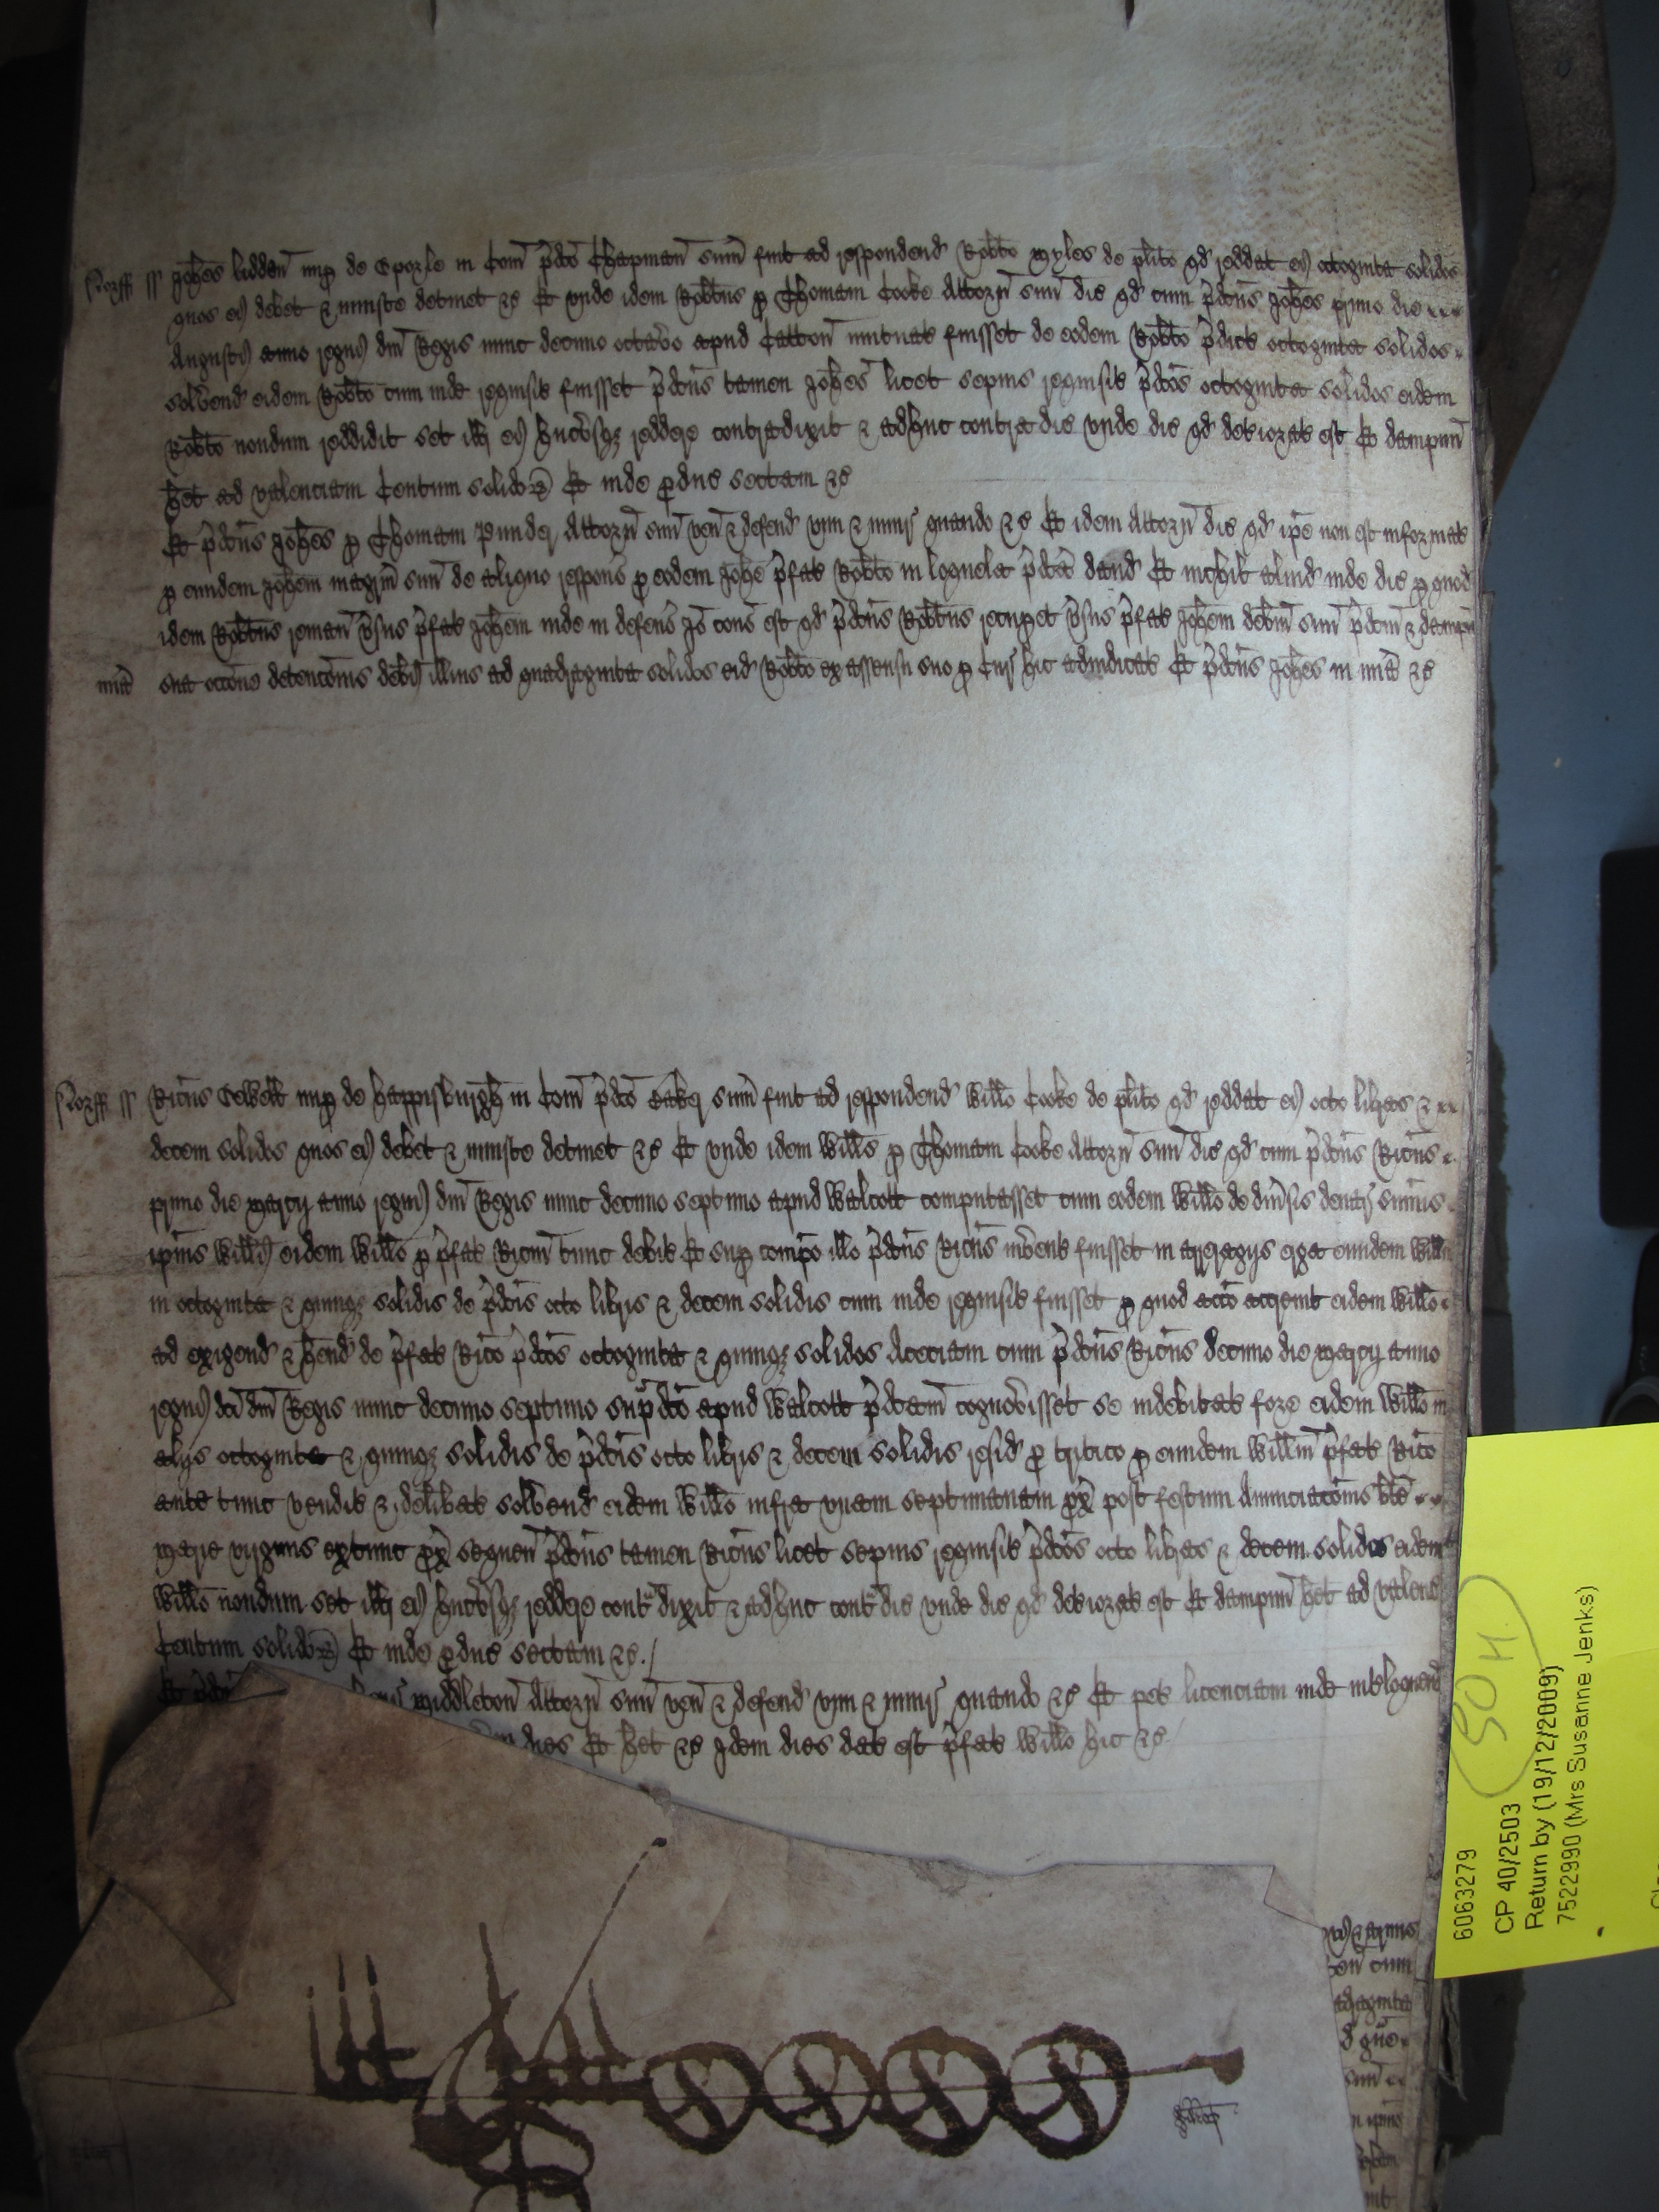 Norff ss Joħes lidden nup de Sporle in Com̄ p̄dco Chapman sum̄ fuit ad respondend Rob̄to Myles de pl̄ito qd reddat ei octoginta solidos
quos ei debet & iniuste detinet &c Et unde idem Rob̄tus p Thomam Cooke Attorn̄ suū dic qd cum p̄dcus Joħes primo die
Augusti anno regni dn̄i Regis nunc decimo octavo apud Catton mutuat fuisset de eodem Rob̄to p̄dict octoginta solidos
solvend eidem Rob̄to cum inde requisit fuisset p̄dcus tamen Joħes licet sepius requisit p̄dcos octoginta solidos eidem
Rob̄to nondum reddidit set ill ei hucusq reddere contradixit & adhuc contradic unde dic qd deteriorat est Et dampnū
h̄et ad valenciam Centum solidor Et inde producit sectam &c
Et p̄dcus Joħes p Thomam Attorn̄ suū ven̄ & defend vim & iniur quando &c Et idem Attorn̄ dic qd ip̄e non est informat
p eundem Joħem magr̄m suū de aliquo respons̄ p eodem Joħe p̄fat Rob̄to in loquela p̄dca dand Et nichil aliud inde dic p quod
idem Rob̄tus reman̄ v̄sus p̄fat Joħem inde in defens̄ Iō cons̄ est qd p̄dcus Rob̄tus recup̄et v̄sus p̄fat Joħem deb̄m suū p̄dcm & dampn̄
mīa sua occōne detencōnis deb̄i illius ad quadraginta solidos eid Rob̄to ex assensu suo p Cur hic adiudicat Et p̄dcus Joħes in mīa &c
Norff ss Ricus nup de happisburgh in Com̄ p̄dco sum̄ fuit ad respondend Will̄o Cooke de pl̄ito qd reddat ei octo libras &
decem solidos quos ei debet & iniuste detinet &c Et unde idem Will̄s p Thomam Cooke Attorn̄ suū dic qd cum p̄dcus Ricus
primo die Marcij anno regni dn̄i Regis nunc decimo septimo apud Walcott computasset cum eodem Will̄o de div̄sis denar sum̄is
ip̄ius Will̄i eidem Will̄o p p̄fat Ricm tunc debit Et sup compo illo p̄dcus Ricus inv̄ent fuisset in arreragijs erga eundem Will̄m
in octoginta & quinq solidis de p̄dcis octo libris & decem solidis cum inde requisit fuisset p quod acco accrevit eidem Will̄o
ad exigend & h̄end de p̄fat Rico p̄dcos octoginta & quinq solidos Acetiam cum p̄dcus Ricus decimo die Marcij anno
regni dc̄i dn̄i Regis nunc decimo septimo sup̄dco apud Walcott p̄dcam cognovisset se indebitat fore eidem Will̄o in
alijs octoginta & quinq solidis de p̄dcis octo libris & decem solidis resid p tritico p eundem Will̄m p̄fat Rico
ante tunc vendit & delib̄at solvend eidem Will̄o infra unam septimanam p̄x post festum Annunciacōnis b̄te
Marie virginis extunc p̄x sequen̄ p̄dcus tamen Ricus licet sepius requisit p̄dcos octo libras & decem solidos eidem
Will̄o nondum set ill ei hucusq reddere contradixit & adhuc contradic unde dic qd deteriorat est Et dampnū h̄et ad valenc
Centum solidor Et inde producit sectam &c
Et Middleton Attorn̄ suū ven̄ & defend vim & iniur quando &c Et pet licenciam inde int̄loquend
dies Et h̄et &c Idem dies dat est p̄fat Will̄o hic &c
50H
6063279
CP 40/2503
Return by (19/12/2009)
7522990 (Mrs Susanne Jenks)